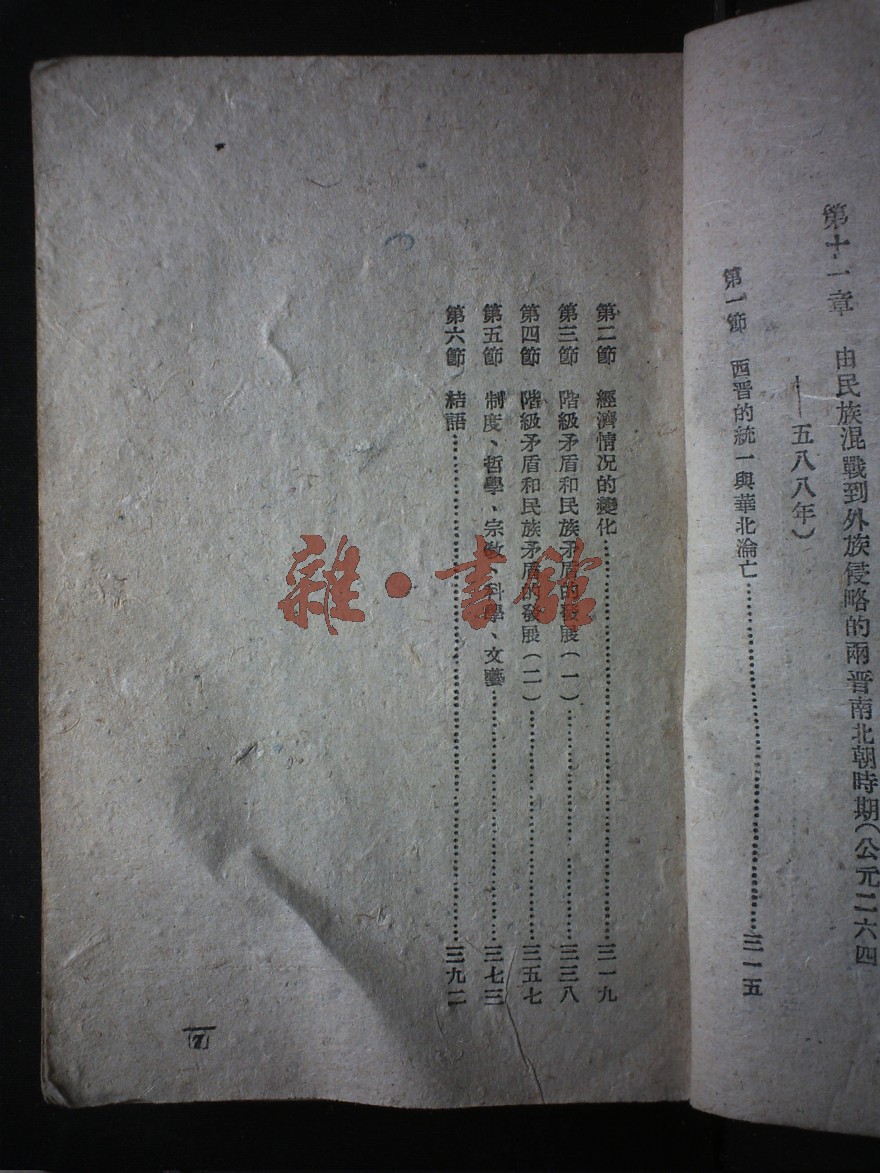 第十一章　由民族混戰到外族侵略的兩晋南北朝時期(公元二六四
——五八八年)
第一節　西晋的統一與華北淪亡……三一五
第二節　經濟情况的變化……三一九
第三節　階級矛盾和民族矛盾的發展(一)……三三八
第四節　階級矛盾和民族矛盾的發展(二)……三五七
第五節　制度、哲學、宗教、科學、文藝……三七三
第六節　結語……三九二
7
雜·書館